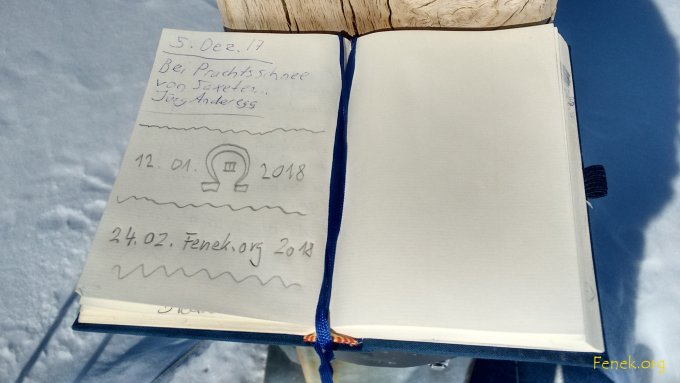 5. Dez. 17
Bei Prachtsschnee
von Saxeten..
Jürg Anderegg
12. 01. III 2018
24.02. Fenek.org 2018
Fenek.org